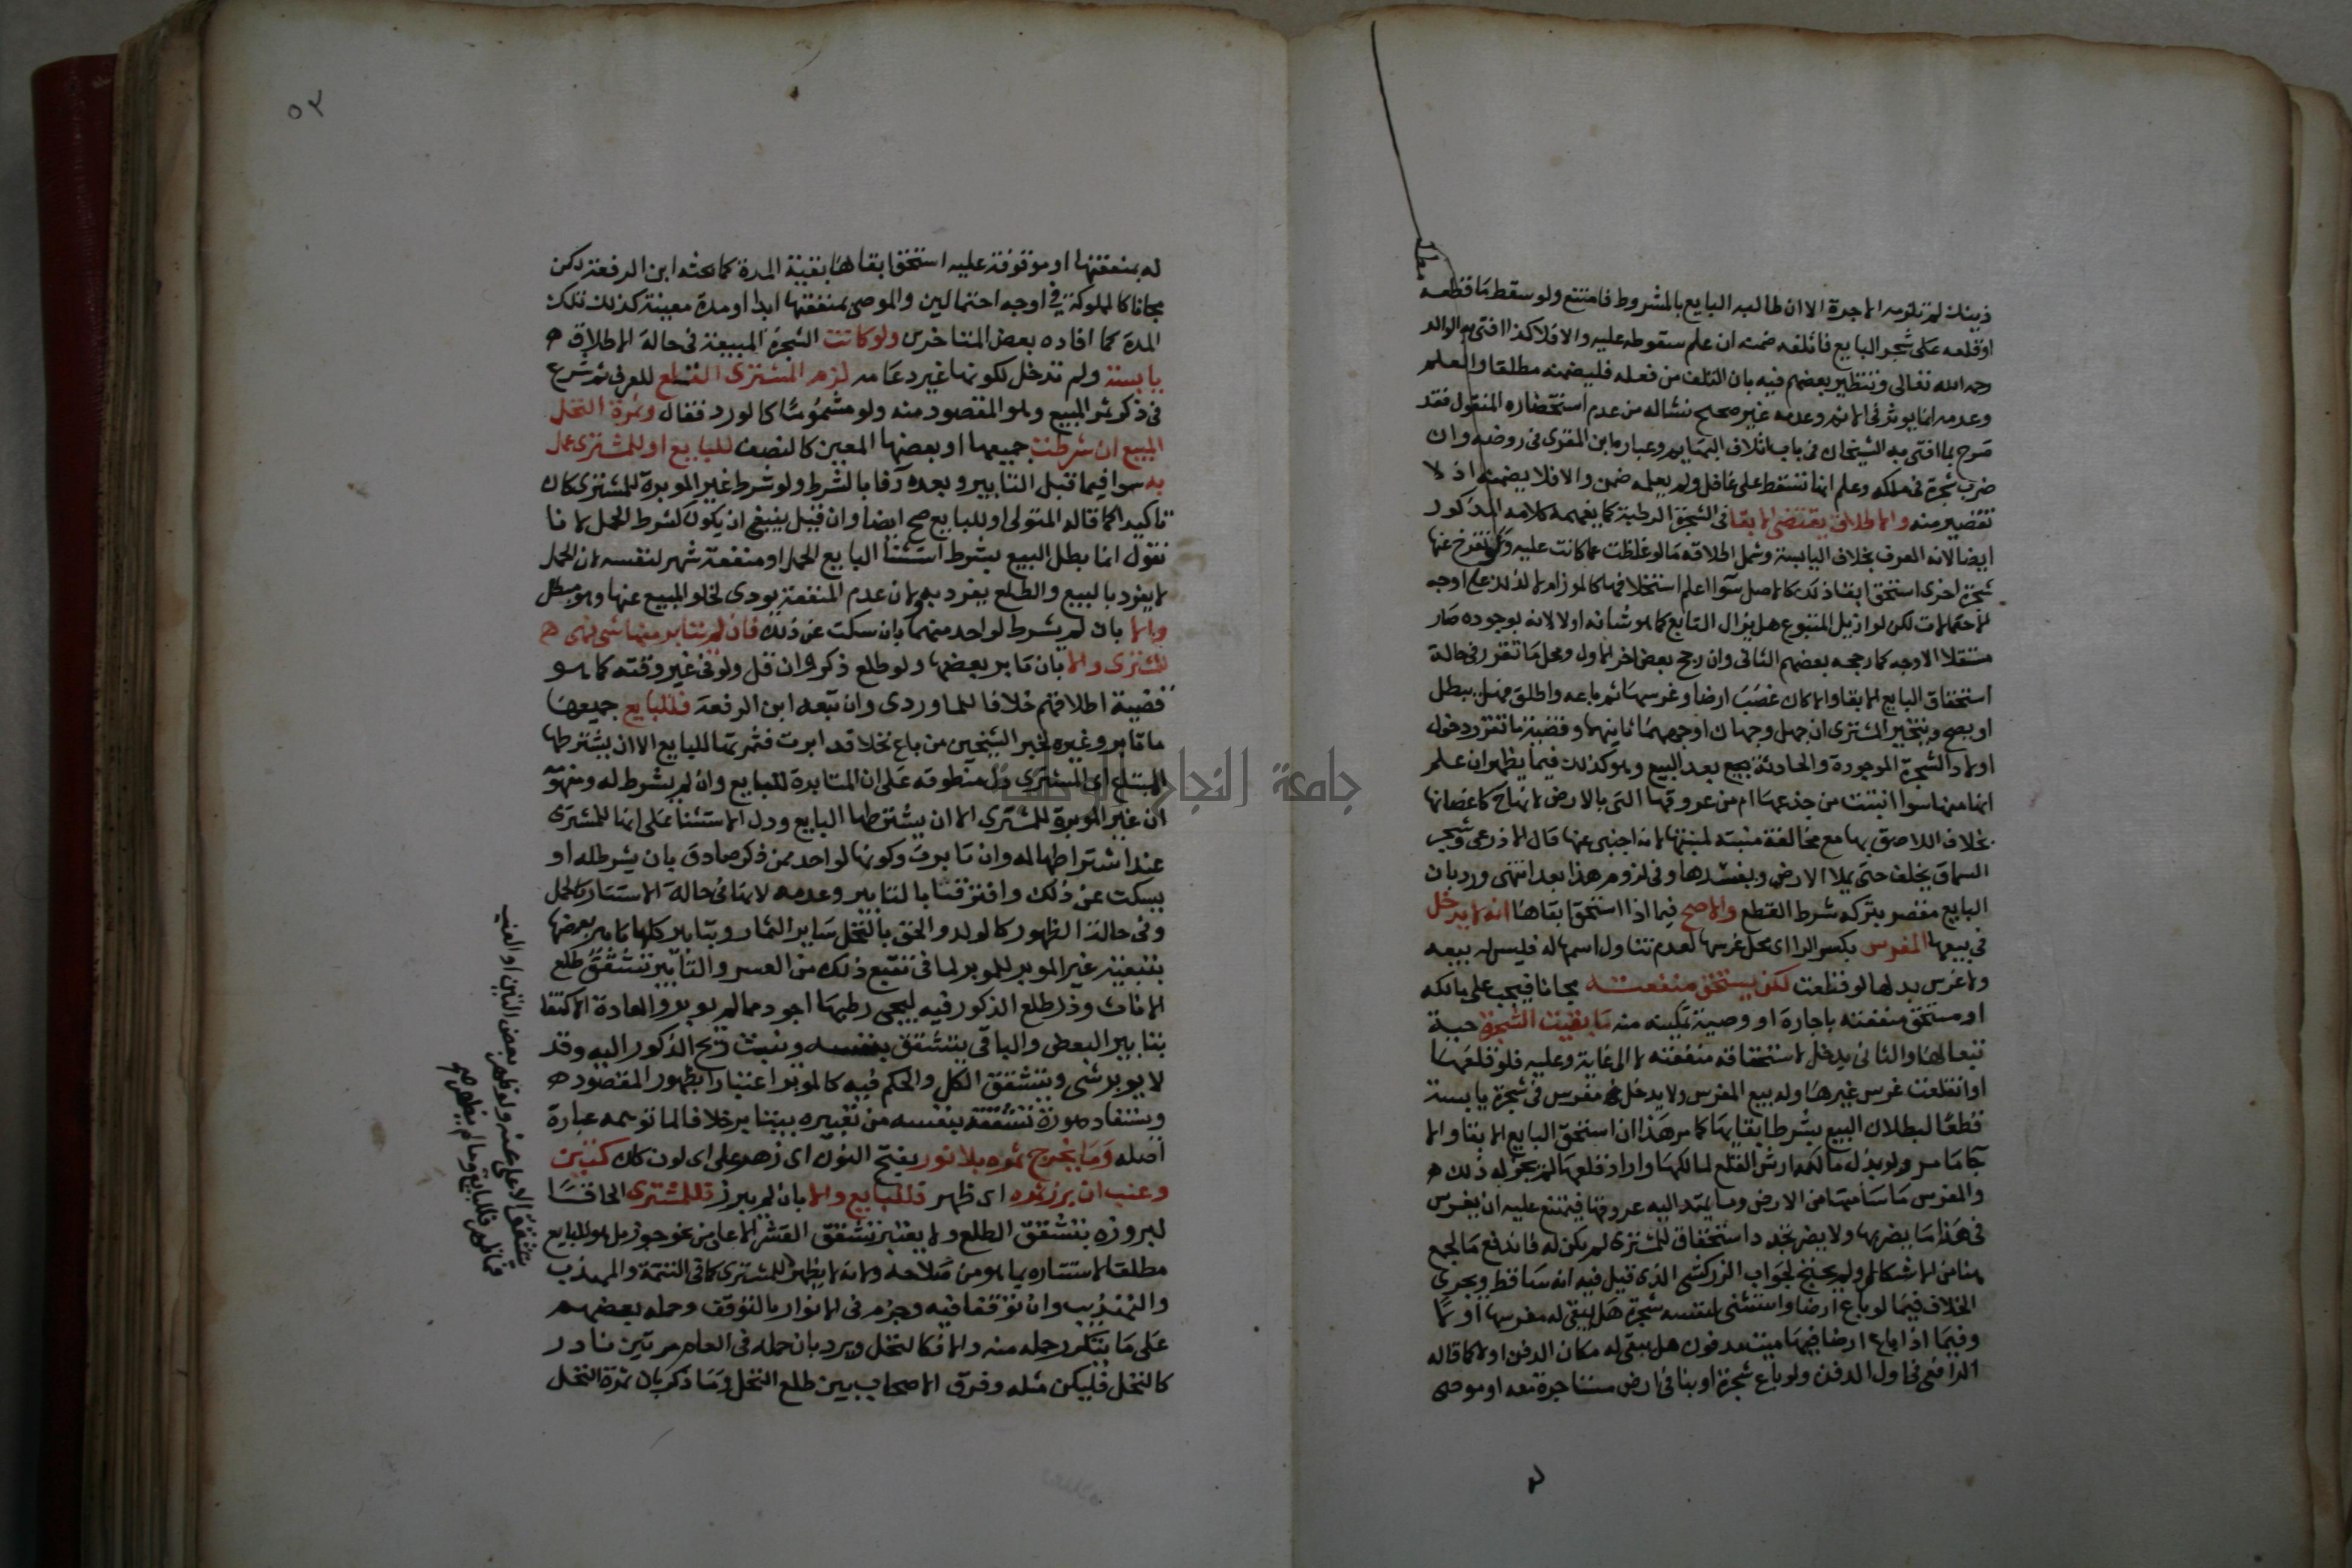 ذينك لم تلزمه الاجرة الا ان طالبه البايع بالمشروط فامتنع ولو سقط ما قطعه
او قلعه على شجر البايع فاتلفه ضمنه ان علم سقوطه عليه والا فلا كذا افتى به الوالد
رحمه الله تعالى وتنظير بعضهم فيه بان التلف من فعله فليضمنه مطلقا والعلم
وعدمه انما يوثر في الاثم وعدمه غير صحيح نشا له من عدم استحضاره المنقول فقد
صرح بما افتى به الشيخان في باب اتلاف البهايم وعباره ابن المقرى في روضه وان
ضرب شجرة في ملكه وعلم انها تسقط على غافل ولم يعلمه ضمن والا فلا يضمنه اذ لا
تقصير منه والاطلاق يقتضى الابقا في الشجرة الرطبة كما يفهمه كلامه المذكور
ايضا لانه العرف بخلاف اليابسة وشمل اطلاقه ما لو غلظت عما كانت عليه وتفرخ عنها
شجرة اخرى استحق ابقا ذلك كالاصل سوا اعلم استخلافها كالموز ام لا لذلك على اوجه
الاحتمالات لكن لو ازيل المتبوع هل يزال التابع كما هو شانه اولا لانه بوجوده صار
مستقلا الاوجه كما رجحه بعضهم الثانى وان رجح بعض اخر الاول ومحل ما تقرر في حالة
استحقاق البايع الابقا والا كان غصب ارضا وغرسها ثم باعه واطلق فهل يبطل
او يصح ويتخير المشترى ان جهل وجهان اوجههما ثانيهما وقضية ما تقرر دخول
اولاد الشجرة الموجودة والحادثة بعد البيع وهو كذلك فيما يظهر ان علم
انها منها سوا انبتت من جذعها ام من عروقها التى بالارض لانها ح كاغصانها
بخلاف اللاصق بها مع مخالفة منبته لمنبتها لانه اجنبى عنها قال الاذرعى وشجر
السماق يخلف حتى يملا الارض ويفسدها وفى لزوم هذا بعد انتهى ورد بان
البايع مقصر بتركه شرط القطع والاصح فيما اذا استحق ابقاها انه لا يدخل
في بيعها المغرس بكسر الرا اى محل غرسها لعدم تناول اسمها له فليس له بيعه
ولا غرس بدلها لو قطعت لكن يستحق منفعته مجانا فيجب على مالكه
او مستحق منفعته باجارة او وصية تمكينه منه ما بقيت الشجرة حية
تبعا لها والثانى يدخل لاستحقاقه منفعته لا الى غاية وعليه فلو قلعها
او انقلعت غرس غيرها وله بيع المغرس ولا يدخل مغرس في شجرة يابسة
قطعا لبطلان البيع بشرط ابقايها كما مر هذا ان استحق البايع الابقا والا
كما مر ولو بذل مالكه ارش القلع لمالكها واراد قلعها لم يجز له ذلك
والمغرس ما سامتها من الارض وما يمتد اليه عروقها فيمتنع عليه ان يغرس
في هذا ما يضر بها ولا يضر تجدد استحقاق للمشترى لم يكن له فاندفع ما لجمع
هنا من الاشكال ولم يحتج لجواب الزركشى الذى قيل فيه انه ساقط ويجرى
الخلاف فيما لو باع ارضا واستثنى لنفسه شجرة هل يبقى له مغرسها او لا
وفيما اذا باع ارضا فيها ميت مدفون هل يبقى له مكان الدفن اولا كما قاله
الرافعى في اول الدفن ولو باع شجرة او بنا في ارض مستاجرة معه او موصى
له
٥٢
له بمنفعتها او موقوفة عليه استحق ابقاها بقية المدة كما بحثه ابن الرفعة لكن
مجانا كالمملوكة في اوجه احتمالين والموصى بمنفعتها ابدا او مدة معينة كذلك تلك
المدة كما افاده بعض المتاخرين ولو كانت الشجرة المبيعة فى حالة الاطلاق
يابسة ولم تدخل لكونها غير دعامه لزم المشترى القلع للعرف ثم شرع
فى ذكر ثمر المبيع وهو المقصود منه ولو مشموما كالورد فقال وثمرة النخل
المبيع ان شرطت جميعها او بعضها المعين كالنصف للبايع او للمشترى عمل
به سوا فيما قبل التابير وبعده وفا بالشرط ولو شرط غير الموبرة للمشترى كان
تاكيدا كما قاله المتولى او للبايع صح ايضا وان قيل ينبغى ان يكون كشرط الحمل لانا
نقول انما بطل البيع بشرط استثنا البايع الحمل او منفعة شهر لنفسه لان الحمل
لا يفرد بالبيع والطلع يفرد به ولان عدم المنفعة يودى لخلو المبيع عنها وهو مبطل
والا بان لم يشرط لواحد منهما بان سكت عن ذلك فان لم يتابر منها شى فهى
للمشترى والا بان تابر بعضها ولو طلع ذكر وان قل ولو فى غير وقته كما هو
قضية اطلاقهم خلافا للماوردى وان تبعه ابن الرفعة فللبايع جميعها
ما تابر وغيره لخبر الشيخين من باع نخلا قد ابرت فثمرتها للبايع الا ان يشترطها
المبتاع اى المشترى دل منطوقه على ان المتابرة للبايع وان لم يشرط له ومفهومه
ان غير الموبرة للمشترى الا ان يشترطها البايع ودل الاستثنا على انها للمشترى
عند اشتراطها له وان تابرت وكونها لواحد ممن ذكر صادق بان يشرط له او
يسكت عن ذلك وافترقتا بالتابير وعدمه لانها فى حالة الاستتار كالحمل
وفى حالة الظهور كالولد والحق بالنخل ساير الثمار وبتابير كلها تابير بعضها
بتبعية غير الموبر للموبر لما فى تتبع ذلك من العسر والتابير تشقق طلع
الاناث وذر طلع الذكور فيه ليجى رطبها اجود مما لم يوبر والعادة الاكتفا
بتابير البعض والباقى يتشقق بنفسه وينبث ريح الذكور اليه وقد
لا يوبر شى ويتشقق الكل والحكم فيه كالموبر اعتبارا بظهور المقصود
ويستفاد صورة تشققه بنفسه من تعبيره بيتابر خلافا لما توهمه عبارة
اصله وما يخرج ثمره بلا نور بفتح النون اى زهر على اى لون كان كتين
وعنب ان برز ثمره اى ظهر فللبايع والا بان لم يبرز فللمشترى الحاقا
لبروزه بتشقق الطلع ولا يعتبر تشقق القشر الاعلى من نحو جوز بل هو للبايع
مطلقا لاستتاره بما هو من صلاحه ولانه لا يظهر للمشترى كما فى التتمة والمهذب
والتهذيب وان توقفا فيه وجزم فى الانوار بالتوقف وحمله بعضهم
على ما يتكرر حمله منه والا فكالنخل ويرد بان حمله فى العام مرتين نادر
كالنخل فليكن مثله وفرق الاصحاب بين طلع النخل وما ذكر بان ثمرة النخل
تشقق الاعلى عنه ولو ظهر بعض التين او العنب
فما ظهر فللبايع وما لم يظهر
جامعة النجاح الوطنية